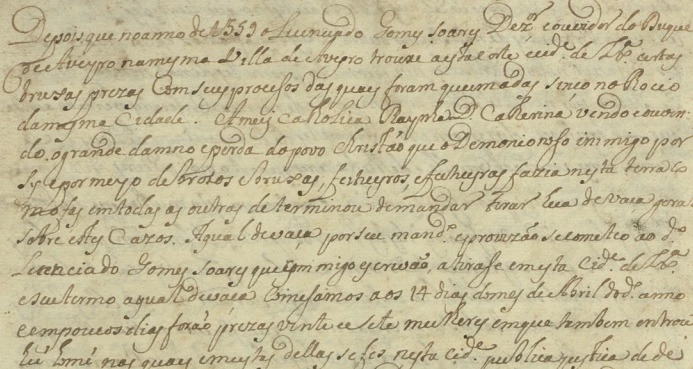 Depois que no anno de 1559 o Licenciado Gomes Soares Dez.or e ouvidor do Duque
de Aveyro na mesma Villa de Aveyro trouxe a esta Corte e cid.e de Lx.a certas
bruxas prezas com seus procesos das quaes foram queimadas sinco no Rocio
da mesma Cidade. A mui Catholica Raynha D. Catherina vendo e ouvin
do, o grande damno e perda do povo Christão que o Demonio noso inmigo por
sy e por meyo de broxos e bruxas, feiticeyros e feiticeyras fazia nesta terra co
mo fas em todas as outras determinou de mandar tirar hua devaça geral
sobre estes Cazos. A qual devaça por seu mand.o e provizão se cometeo ao d.o
Licenciado Gomes Soares que comigo escrivão, a tirase em esta Cid.e de Lx.a
e seu termo a qual devaça Comesamos aos 14 dias do mes de Abril do d.o anno
e em poucos dias forão prezas vinte e sete mulheres em que tambem entrou
hũ home nas quaes e mestas dellas se fes nesta cid.e publica justiça de de